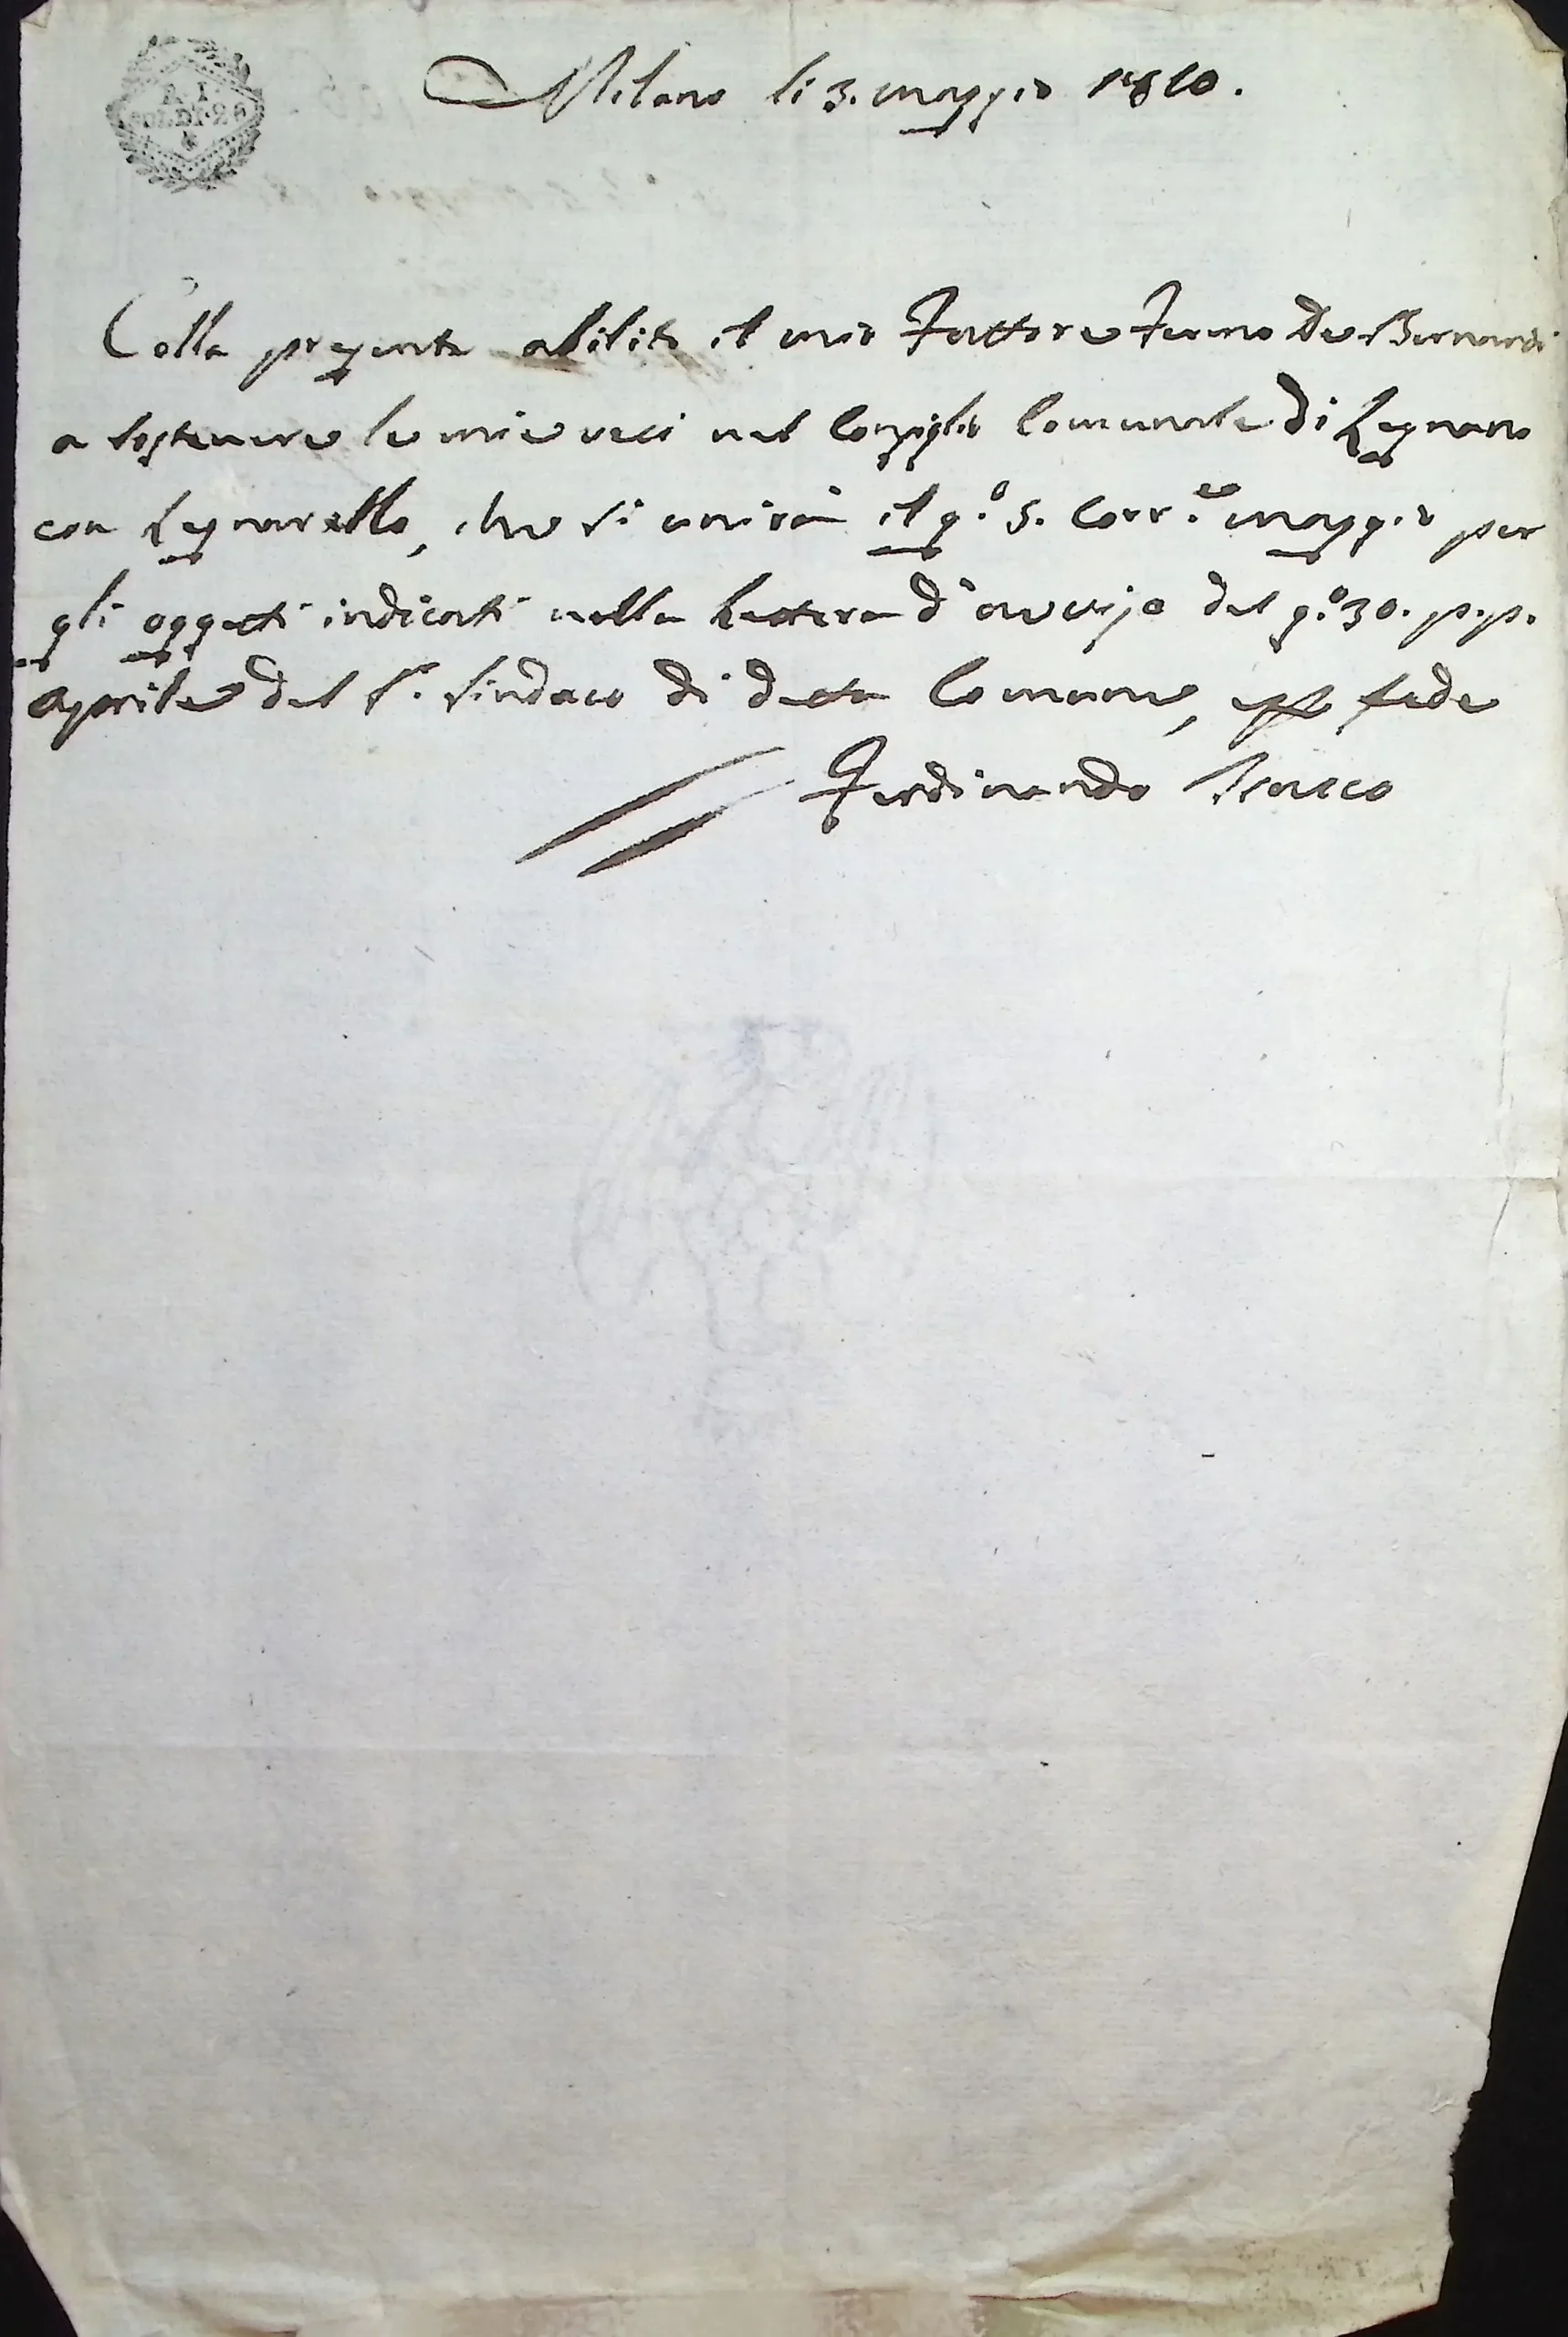 Milano li 3. maggio 1810.
Colla presente abilito il mio Fattore Fermo De Bernardi
a sostenere le mie veci nel Consiglio Comunale di Legnano
con Legnarello, che si unirà il g.º 5. Corr.e maggio per
gli oggetti indicati nella Lettera d'avviso del g.º 30. p.p.
Aprile del S.r Sindaco di detta Comune, e fede
Ferdinando